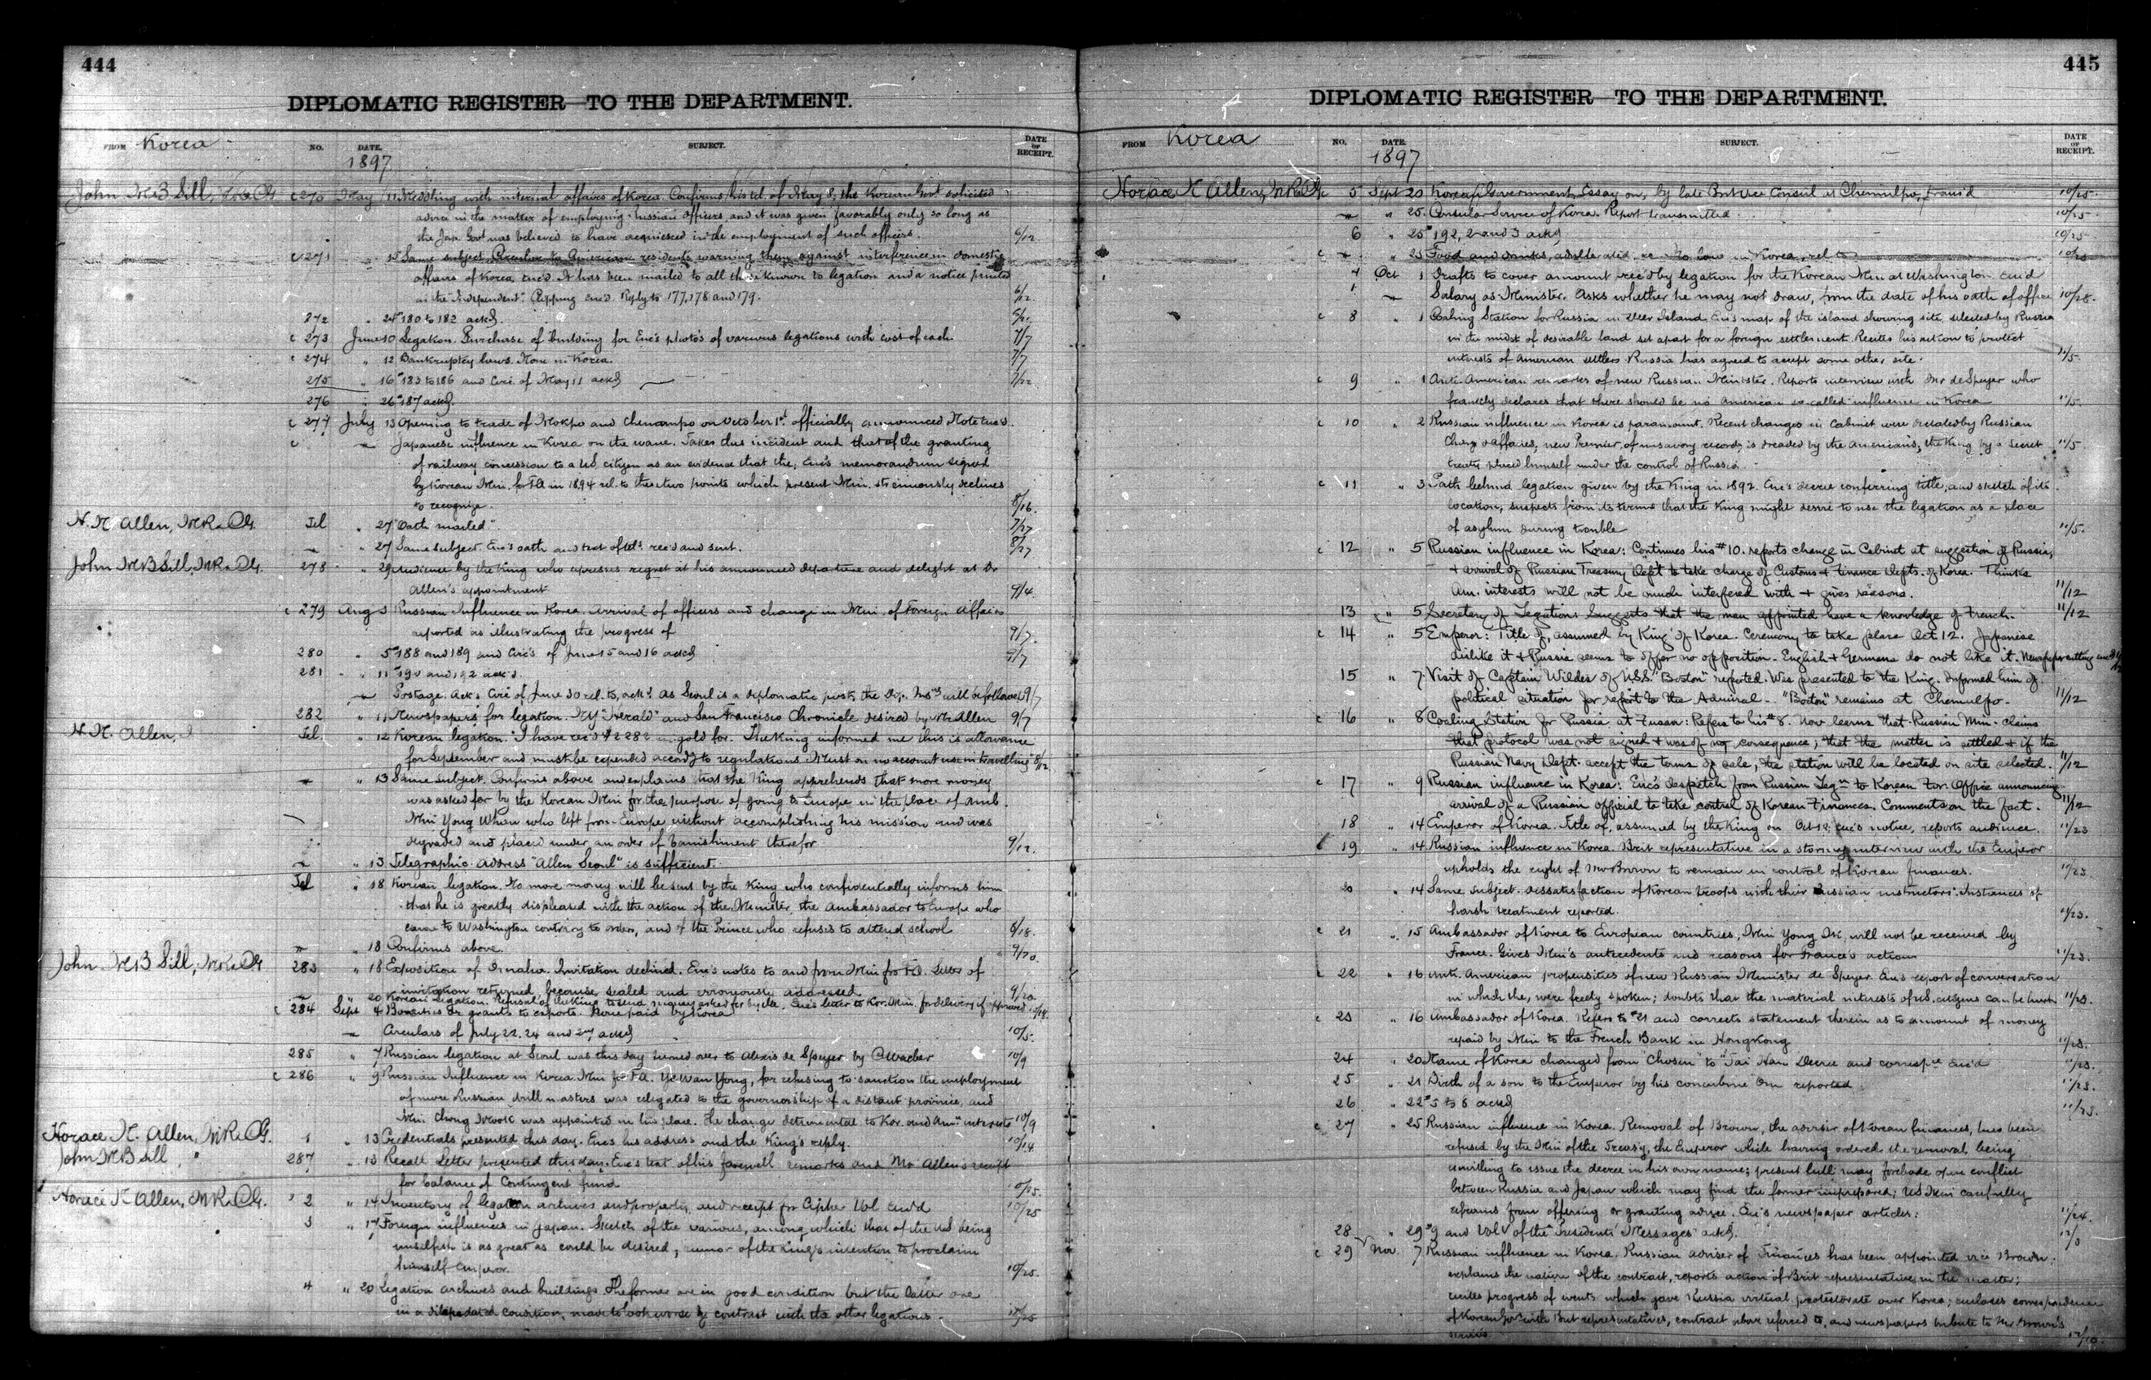 444
DIPLOMATIC REGISTER—TO THE DEPARTMENT.
FROM Korea NO. DATE. SUBJECT. DATE OF RECEIPT.
1897
John M B Sill, c 270 May 11 Meddling with internal affairs of Korea. Confirms his tel. of May 8, the Korean Govt solicited
advice in the matter of employing Russian officers and it was given favorably only so long as
the Jap. Govt was believed to have acquiesced in the employment of such officers. 6/12
c 271 " Same subject. Circular to American residents warning them against interference in domestic
affairs of Korea enc'd. It has been mailed to all those known to legation and a notice printed
in the "Independent". Clipping enc'd. Reply to 177, 178 and 179. 6/12
272 " 24 180 to 182 ack'd.
c 273 June 10 Legation. Purchase of building for Enc's photo's of various legations with cost of each. 7/7
c 274 " 12 Bankruptcy laws. None in Korea. 7/7
275 " 16 183 to 186 and Circ. of May 11 ack'd 7/22
276 " 26 187 ack'd.
c 277 July 13 Opening to trade of Mokpo and Chenampo on October 1st officially announced Note enc'd.
c " Japanese influence in Korea on the wane. Takes this incident and that of the granting
of railway concession to a US citizen as an evidence that the, Enc's memorandum signed
by Korean Min. for FA in 1894 rel. to these two points which present Min. strenuously declines
to recognize. 8/16.
H. N. Allen, MR & CG. Tel " 27 "Oath mailed" 7/27
" 27 Same subject. Enc's oath and text of tel. rec'd and sent.
John M B Sill, MR & CG. 278 " 29 Audience by the King who expresses regret at his announced departure and delight at Dr
Allen's appointment 9/4.
c 279 Aug 3 Russian Influence in Korea. Arrival of officers and change in Min. of Foreign Affairs
reported as illustrating the progress of 9/7.
280 " 5 188 and 189 and Circ's of June 15 and 16 ack'd 9/7
281 " 11 190 and 192 ack'd.
" Postage. Ack's Circ of June 30 rel. to, ack'd. As Seoul is a diplomatic post, the Dip. Ins will be followed 9/7
282 " 11 Newspapers for legation. NY "Herald" and San Francisco Chronicle desired by Mr Allen 9/7
H. N. Allen, Tel " 12 Korean legation. "I have rec'd $2282 in gold for. The King informed me this is allowance
for September and must be expended accord'g to regulations. Must on no account use in travelling 8/12
" 13 Same subject. Confirms above and explains that the King apprehends that more money
was asked for by the Korean Min for the purpose of going to Europe in the place of Amb.
Min Yong Whan who left from Europe without accomplishing his mission and was
degraded and placed under an order of banishment therefor 9/12.
" 13 Telegraphic address "Allen Seoul" is sufficient.
Tel " 18 Korean legation. No more money will be sent by the King who confidentially informs him
that he is greatly displeased with the action of the Minister, the Ambassador to Europe who
came to Washington contrary to orders, and of the Prince who refuses to attend school 8/18.
" 18 Confirms above. 9/20.
John M B Sill, MR & CG 283 " 18 Exposition of Omaha. Invitation declined. Enc's notes to and from Min for FA. Letter of
invitation returned, because sealed and erroneously addressed 9/20.
" 20 Korean Legation. Refusal of the King to send money asked for by the. Enc's letter to Kor. Min. for delivery if approved
c 284 Sept 4 Bounties or grants to exports. None paid by Korea
" Circulars of July 22, 24 and 27 ack'd 10/5.
285 " 7 Russian legation at Seoul was this day turned over to Alexis de Speyer by C Waeber 10/9
c 286 " 9 Russian Influence in Korea. Min for FA. Ye Wan Yong, for refusing to sanction the employment
of more Russian drill masters was relegated to the governorship of a distant province, and
Min Chong Mook was appointed in his place. The change detrimental to Kor. and Amn interests 10/9
Horace N. Allen, MR & CG. 1 " 13 Credentials presented this day. Enc's his address and the King's reply. 10/14
John M B Sill " 287 " 13 Recall Letter presented this day. Enc's text of his farewell remarks and Mr Allen's receipt
for balance of Contingent fund 10/25.
Horace N Allen, MR & CG. 2 " 14 Inventory of legation archives and property, and receipt for Cipher Vol enc'd 10/25
3 " 17 Foreign influences in Japan. Sketch of the various, among which that of the US being
unselfish is as great as could be desired, rumor of the King's intention to proclaim
himself Emperor. 10/25.
4 " 20 Legation archives and buildings. The former are in good condition but the latter are
in a dilapidated condition, made to look worse by contrast with the other legations. 10/25
445
DIPLOMATIC REGISTER—TO THE DEPARTMENT.
FROM Korea NO. DATE. SUBJECT. DATE OF RECEIPT.
1897
Horace N Allen, MR & CG c 5 Sept 20 Korea, Government, Essay on, by late Brit Vice Consul at Chemulpo, trans'd 10/25.
" 25. Consular Service of Korea. Report transmitted. 10/25.
6 " 25 192, 2 and 3 ack'd 10/25.
c " 25 Food and drinks, adulterated. No laws in Korea, rel to 10/25
7 Oct 1 Drafts to cover amount rec'd by legation for the Korean Min at Washington enc'd
" Salary as Minister. Asks whether he may not draw, from the date of his oath of office 10/28.
c 8 " 1 Coaling Station for Russia in Deer Island. Enc's map of the island showing site selected by Russia
in the midst of desirable land set apart for a foreign settlement. Recites his action to protect
interests of American settlers. Russia has agreed to accept some other site. 11/5.
c 9 " 1 Anti-American remarks of new Russian Minister. Reports interview with Mr de Speyer who
frankly declares that there should be no American so-called influence in Korea 11/5.
c 10 " 2 Russian influence in Korea is paramount. Recent changes in Cabinet were dictated by Russian
Charge d'affaires, new Premier, of unsavory record, is dreaded by the Americans, the King by a secret 11/5
treaty placed himself under the control of Russia.
c 11 " 3 Path behind legation given by the King in 1892. Enc's decree conferring title, and sketch of its
location, suspects from its terms that the King might desire to use the legation as a place
of asylum during trouble 11/5.
c 12 " 5 Russian influence in Korea: Continues his #10. reports change in Cabinet at suggestion of Russia,
+ arrival of Russian Treasury Dep't to take charge of Customs + Finance Depts. of Korea. Thinks
Am. interests will not be much interfered with + gives reasons. 11/12
13 " 5 Secretary of Legation: Suggests that the man appointed have a knowledge of French. 11/12
c 14 " 5 Emperor: Title of, assumed by King of Korea. Ceremony to take place Oct 12. Japanese
dislike it + Russia seems to offer no opposition. English + Germans do not like it. Newspaper cutting enc'd
15 " 7 Visit of Captain Wildes of U.S.S. "Boston" reported. Was presented to the King. Informed him of
political situation for report to the Admiral. "Boston" remains at Chemulpo. 11/12
c 16 " 8 Coaling Station for Russia at Fusan: Refers to his #8. Now learns that Russian Min. claims
that protocol was not signed + was of no consequence; that the matter is settled + if the
Russian Navy Dept. accept the terms of sale, the station will be located on site selected. 11/12
c 17 " 9 Russian influence in Korea: Enc's despatch from Russian Leg'n to Korean For. Office announcing
arrival of a Russian official to take control of Korean Finances. Comments on the fact. 11/12
18 " 14 Emperor of Korea. Title of, assumed by the King on Oct 12; enc's notice, reports audience. 11/23
c 19 " 14 Russian influence in Korea. Brit representative in a stormy interview with the Emperor
upholds the right of Mr Brown to remain in control of Korean finances. 11/23
20 " 14 Same subject. Dissatisfaction of Korean troops with their Russian instructors. Instances of
harsh treatment reported. 11/23.
c 21 " 15 Ambassador of Korea to European countries, Min Yong Ik, will not be received by
France. Gives Min's antecedents and reasons for France's action 11/23.
c 22 " 16 Anti-American propensities of new Russian Minister de Speyer. Enc's report of conversation
in which they were freely spoken; doubts that the material interests of U.S. citizens can be hurt 11/23.
c 23 " 16 Ambassador of Korea. Refers to #21 and corrects statement therein as to amount of money
repaid by Min to the French Bank in Hongkong 11/23.
24 " 20 Name of Korea changed from "Chosen" to "Tai Han. Decree and corresp'ce enc'd 11/23.
25 " 21 Birth of a son to the Emperor by his concubine Om reported. 11/23.
26 " 22 5 to 8 ack'd 11/23.
c 27 " 25 Russian influence in Korea. Removal of Brown, the adviser of Korean finances, has been
refused by the Min of the Treasy, the Emperor while having ordered the removal being
unwilling to issue the decree in his own name; present lull may forebode open conflict
between Russia and Japan which may find the former unprepared; US Min carefully
refrains from offering or granting advice. Enc's newspaper articles. 11/24.
28 " 29 9 and Vol V of the "Presidents' Messages" ack'd.
c 29 Nov. 7 Russian influence in Korea. Russian adviser of Finances has been appointed vice Brown.
explains the nature of the contract, reports action of Brit representative in the matter;
recites progress of events which gave Russia virtual protectorate over Korea; encloses correspondence
of Korean Gov with Brit representatives, contract above referred to, and newspapers tribute to Mr Brown's
services 12/10.